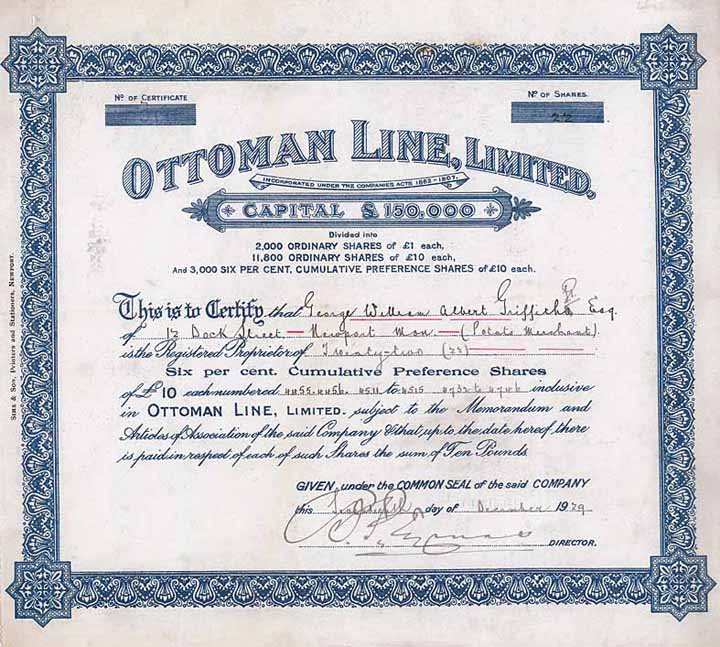 Nº OF CERTIFICATE
Nº OF SHARES.
22
OTTOMAN LINE, LIMITED,
INCORPORATED UNDER THE COMPANIES ACTS 1862–1907.
CAPITAL £150,000
Divided into
2,000 ORDINARY SHARES of £1 each,
11,800 ORDINARY SHARES of £10 each,
And 3,000 SIX PER CENT. CUMULATIVE PREFERENCE SHARES of £10 each.
This is to Certify that George William Albert Griffiths Esq.
of 12 Dock Street — Newport Mon — (Potato Merchant)
is the Registered Proprietor of Twenty-two (22)
Six per cent. Cumulative Preference Shares
of £10 each numbered 4455. 4456. 4511 to 4515 4732 to 4746 inclusive
in OTTOMAN LINE, LIMITED. subject to the Memorandum and
Articles of Association of the said Company & that up to the date hereof there
is paid in respect of each of such Shares the sum of Ten Pounds
GIVEN under the COMMON SEAL of the said COMPANY
this day of December 1929
DIRECTOR.
SIMS & SON, PRINTERS AND STATIONERS, NEWPORT.